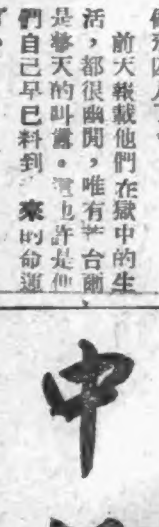 前天報載他們在獄中的生
活，都很幽閒，唯有台爾
是整天的叫囂。也許是他
們自己早已料到來的命運
中